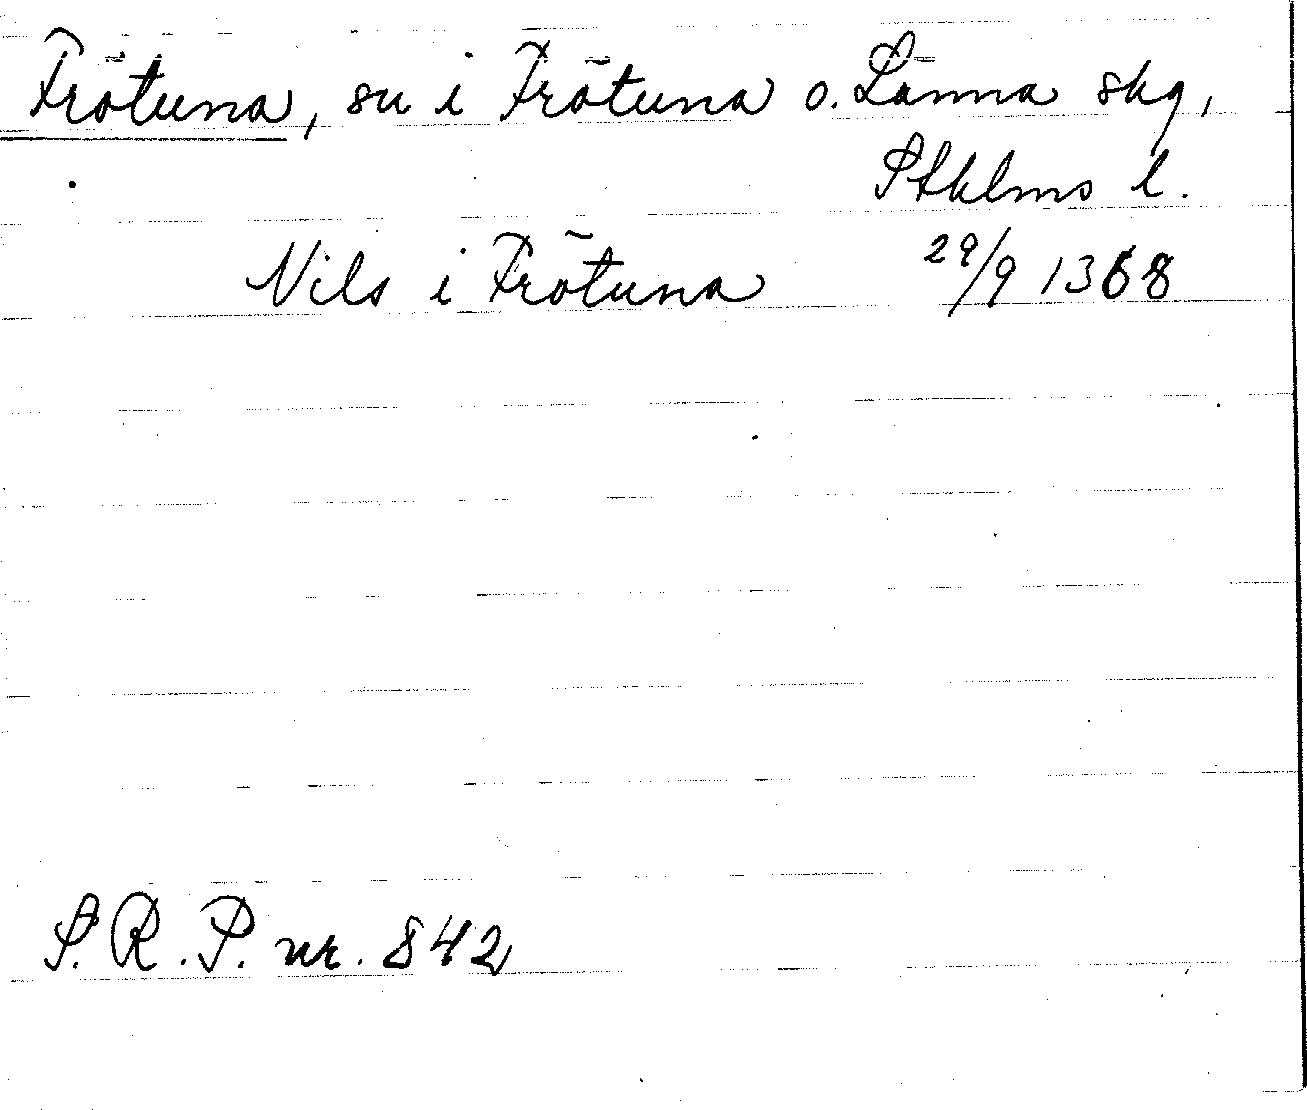 Frötuna, su i Frötuna o. Länna skg,
Sthlms l.
Nils i Frötuna 29/9 1368
S.R.P. nr. 842